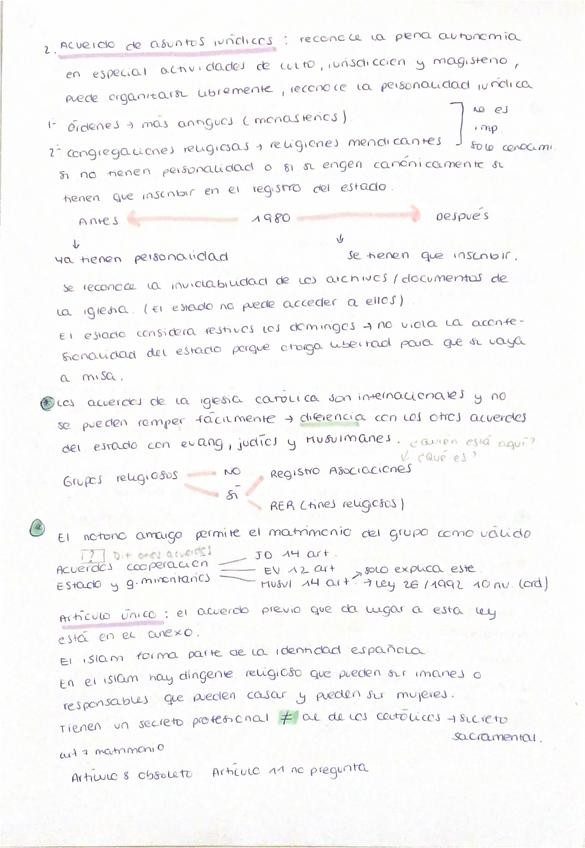 2. Acuerdo de asuntos jurídicos : reconoce la pena autonomía
en especial actividades de culto, jurisdicción y magisterio,
puede organizarse libremente, reconoce la personalidad jurídica
1- Órdenes → más antiguos (monasterios)
2- congregaciones religiosas → religiones mendicantes
no es
imp
solo conocimi.
si no tienen personalidad o si se erigen canónicamente se
tienen que inscribir en el registro del estado.
Antes ← 1980 → Después
↓ ↓
ya tienen personalidad se tienen que inscribir.
se reconoce la inviolabilidad de los archivos / documentos de
la iglesia. (El estado no puede acceder a ellos)
El estado considera festivos los domingos → no viola la aconfe-
sionalidad del estado porque otorga libertad para que se vaya
a misa.
Los acuerdos de la iglesia católica son internacionales y no
se pueden romper fácilmente → diferencia con los otros acuerdos
del estado con evang, judíos y musulmanes. ¿Quién está aquí?
↓ ¿Qué es?
Grupos religiosos NO Registro Asociaciones
SÍ
RER (fines religiosos)
El notorio arraigo permite el matrimonio del grupo como válido
?
Acuerdos cooperación JD 14 art.
Estado y g. minoritarios EV 12 art → solo explica este
MUSUL 14 art → Ley 26/1992 10 nv. (ord)
Artículo único : el acuerdo previo que da lugar a esta ley
está en el anexo.
El islam forma parte de la identidad española
En el islam hay dirigente religioso que pueden ser imanes o
responsables que pueden casar y pueden ser mujeres.
Tienen un secreto profesional ≠ al de los católicos → secreto
sacramental.
art 7 matrimonio
Artículo 8 obsoleto Artículo 11 no pregunta